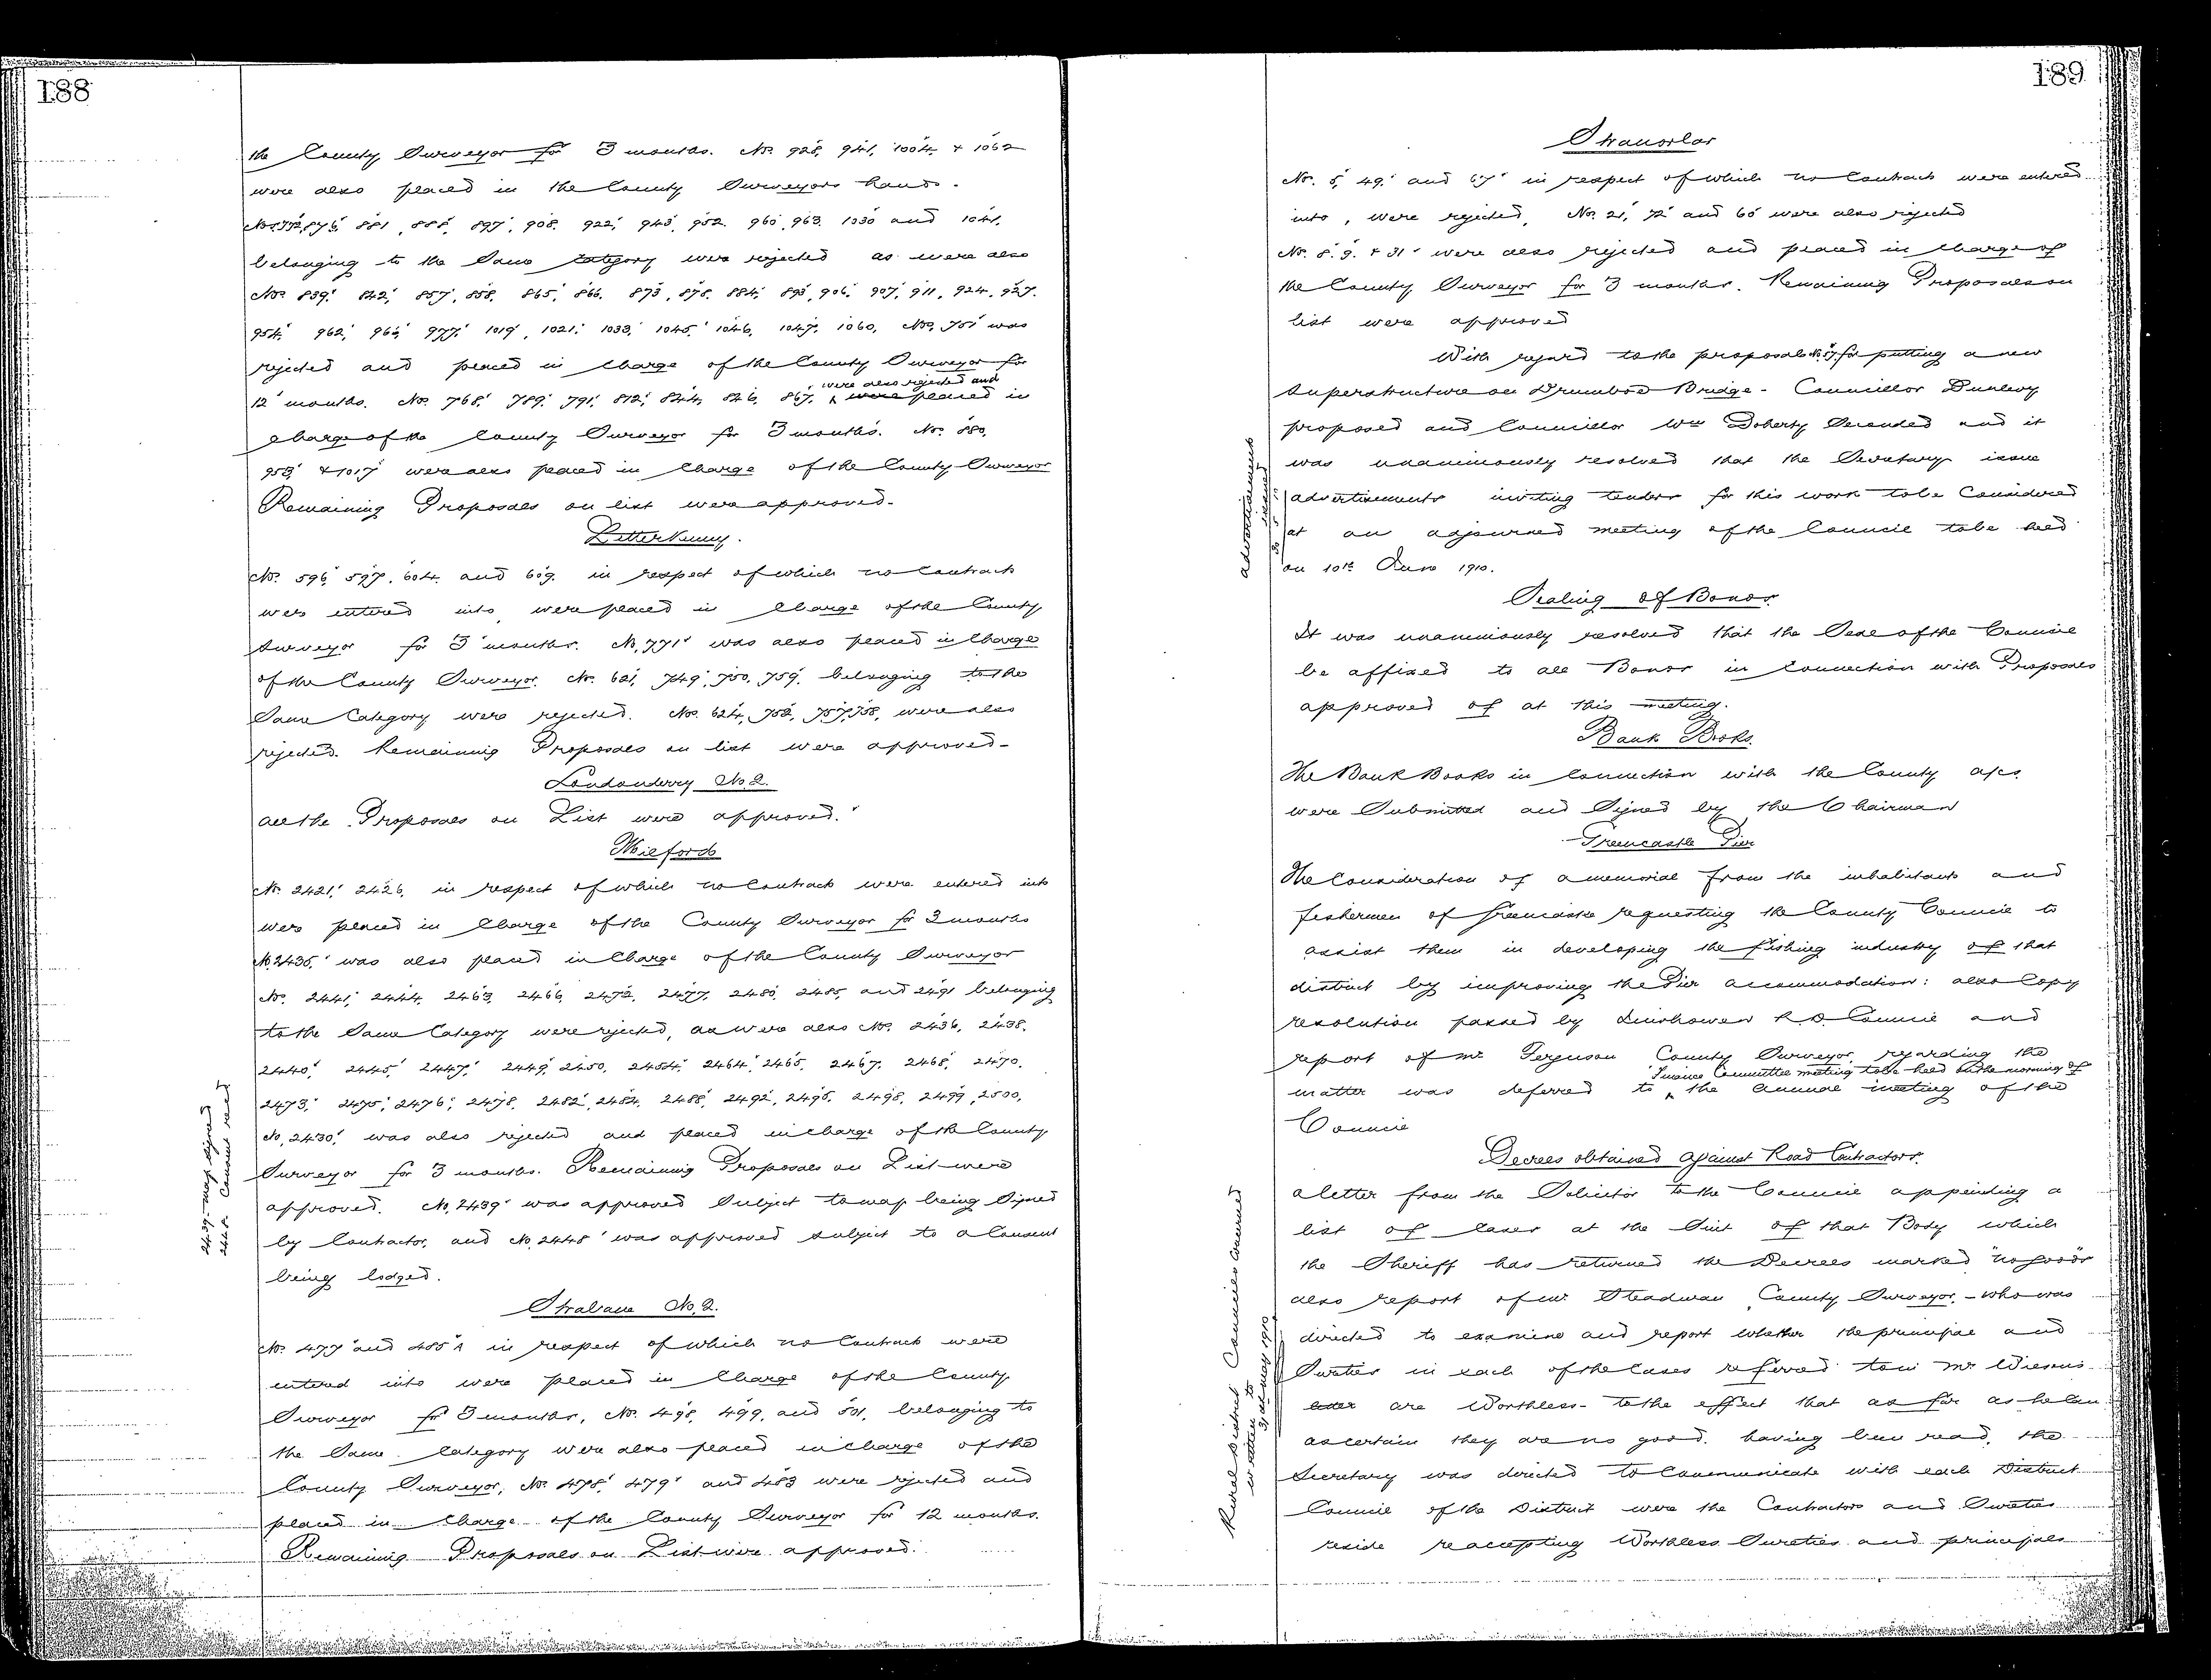 188
the County Surveyor for 3 months. No. 928, 941, 1004, & 1062
were also placed in the County Surveyors hands.
876, 881, 888, 897, 908, 922, 943, 952, 960, 963, 1030 and 1041,
belonging to the Same Category were rejected as were also
Nos 839, 842, 857, 858, 865, 866, 873, 878, 884, 893, 906, 907, 911, 924, 927,
954, 962, 966, 977, 1019, 1021, 1033, 1045, 1046, 1047, 1060, No. 751 was
rejected and placed in Charge of the County Surveyor for
were also rejected and
12 months. No. 768, 789, 791, 812, 824, 826, 867, were placed in
Charge of the County Surveyor for 3 months. No. 880,
953, & 1017 were also placed in Charge of the County Surveyor
Remaining Proposals on list were approved.
Letterkenny.
No. 596, 597, 604, and 609, in respect of which no Contracts
were entered into were placed in Charge of the County
Surveyor for 3 months. No. 771 was also placed in Charge
of the County Surveyor. No. 621, 749, 750, 759, belonging to the
Same Category were rejected. Nos. 624, 752, 757, 758, were also
rejected. Remaining Proposals on list were approved.
Londonderry No. 2.
All the Proposals on List were approved.
Milford
No. 2421, 2426, in respect of which no Contracts were entered into
were placed in Charge of the County Surveyor for 3 months
No. 2435, was also placed in Charge of the County Surveyor
No. 2441, 2444, 2463, 2466, 2472, 2477, 2480, 2485, and 2491 belonging
to the Same Category were rejected, as were also No. 2436, 2438,
2440, 2445, 2447, 2449, 2450, 2454, 2464, 2465, 2467, 2468, 2470,
2473, 2475, 2476, 2478, 2482, 2484, 2488, 2492, 2495, 2498, 2499, 2500,
No. 2430, was also rejected and placed in charge of the County
Surveyor for 3 months. Remaining Proposals on List were
approved. No. 2439 was approved Subject to map being Signed
by Contractor, and No. 2448 was approved subject to a Consent
being lodged.
2439 - map signed
2448 Consent recd
Strabane No. 2.
No. 477 and 485A in respect of which no Contracts were
entered into were placed in Charge of the County
Surveyor for 3 months, No. 498, 499, and 501, belonging to
the Same Category were also placed in charge of the
County Surveyor, No. 478, 479 and 483 were rejected and
placed in Charge of the County Surveyor for 12 months.
Remaining Proposals on List were approved.
189
Stranorlar
No. 5, 49, and 67 in respect of which no Contracts were entered
into, were rejected, No. 21, 72 and 65 were also rejected
No. 8, 9, & 31 were also rejected and placed in Charge of
the County Surveyor for 3 months. Remaining Proposals on
list were approved
With regard to the proposals No. 57 for putting a new
Superstructure on Drumboe Bridge - Councillor Dunlevy
proposed and Councillor Wm Doherty Seconded and it
was unanimously resolved that the Secretary issue
advertisements inviting tenders for this work to be Considered
at an adjourned meeting of the Council to be held
on 10th June 1910.
advertisement
issued
Sealing of Bonds.
It was unanimously resolved that the Seal of the Council
be affixed to all Bonds in Connection with Proposals
approved of at this meeting.
Bank Books.
The Bank Books in Connection with the County a/cs.
were Submitted and Signed by the Chairman
Greencastle Pier
The Consideration of a memorial from the inhabitants and
fishermen of Greencastle requesting the County Council to
assist them in developing the fishing industry of that
district by improving the Pier accommodation: also Copy
resolution passed by Inishowen R.D. Council and
report of Mr Ferguson County Surveyor, regarding the
Finance Committee meeting to be held on the morning of
matter was deferred to the annual meeting of the
Council
Decrees obtained against Road Contractors.
A letter from the Solicitor to the Council appending a
list of Cases at the Suit of that Body which
the Sheriff has returned the Decrees marked "no goods"
also report of Mr Steadman County Surveyor, - who was
directed to examine and report whether the principal and
Sureties in each of the Cases referred to in Mr Wilson's
letter are Worthless - to the effect that as far as he can
ascertain they are no good, having been read, the
Secretary was directed to Communicate with each District
Council of the District were the Contractors and Sureties
reside re accepting Worthless Sureties and principals
Rural District Councils concerned
written to
31st May 1910